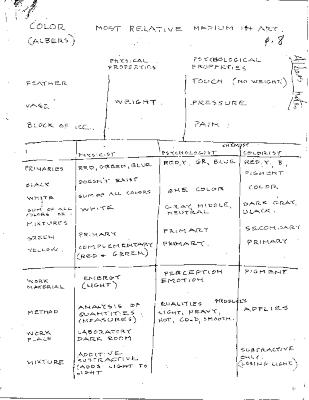 COLOR MOST RELATIVE MEDIUM IN ART.
(ALBERS) p. 8
PHYSICAL PROPERTIES PSYCHOLOGICAL PROPERTIES
FEATHER TOUCH (NO WEIGHT)
VASE WEIGHT PRESSURE
BLOCK OF ICE PAIN
PHYSICIST PSYCHOLOGIST CHEMIST COLORIST
PRIMARIES RED, GREEN, BLUE RED, Y, GR, BLUE RED, Y, B,
PIGMENT
BLACK DOESN'T EXIST ONE COLOR COLOR
WHITE SUM OF ALL COLORS
SUM OF ALL COLORS OR MIXTURES WHITE GRAY, MIDDLE, NEUTRAL DARK GRAY, BLACK.
GREEN PRIMARY PRIMARY SECONDARY
YELLOW COMPLEMENTARY (RED & GREEN) PRIMARY PRIMARY
WORK MATERIAL ENERGY (LIGHT) PERCEPTION EMOTION PIGMENT
METHOD ANALYSIS OF QUANTITIES (MEASURES) QUALITIES LIGHT, HEAVY, HOT, COLD, SMOOTH. APPLIES
WORK PLACE LABORATORY DARK ROOM
MIXTURE ADDITIVE SUBTRACTIVE ADDS LIGHT TO LIGHT SUBTRACTIVE ONLY. (LOSING LIGHT)